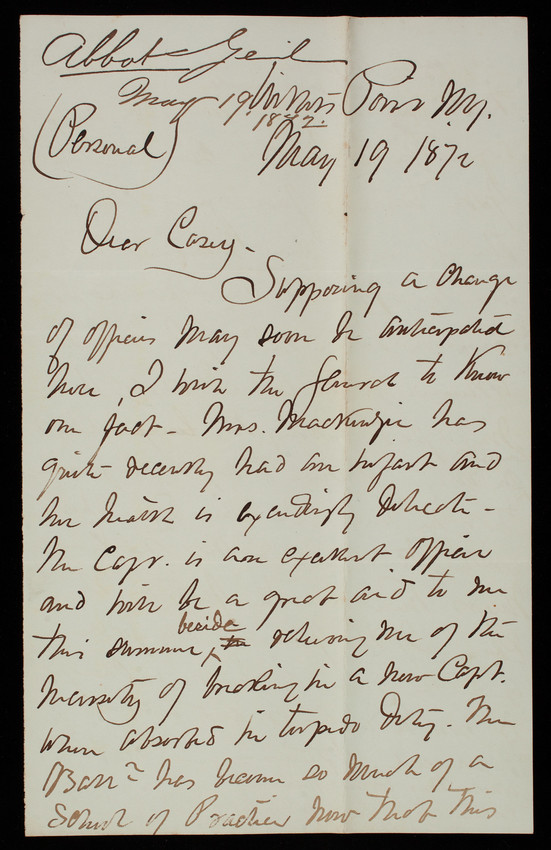 Abbot Genl
May 19 Willets Point N.Y.
1872.
(Personal) May 19 1872
Dear Casey -
Supposing a change
of officers may soon be anticipated
here, I wish the General to know
one fact - Mrs. Mackenzie has
quite recently had an infant and
her health is exceedingly delicate -
The Capt. is an excellent officer
and will be a great aid to me
this summer, beside relieving me of the
necessity of breaking in a new Capt.
when absorbed in torpedo duty. The
Battn has become so much of a
School of Practice now that this